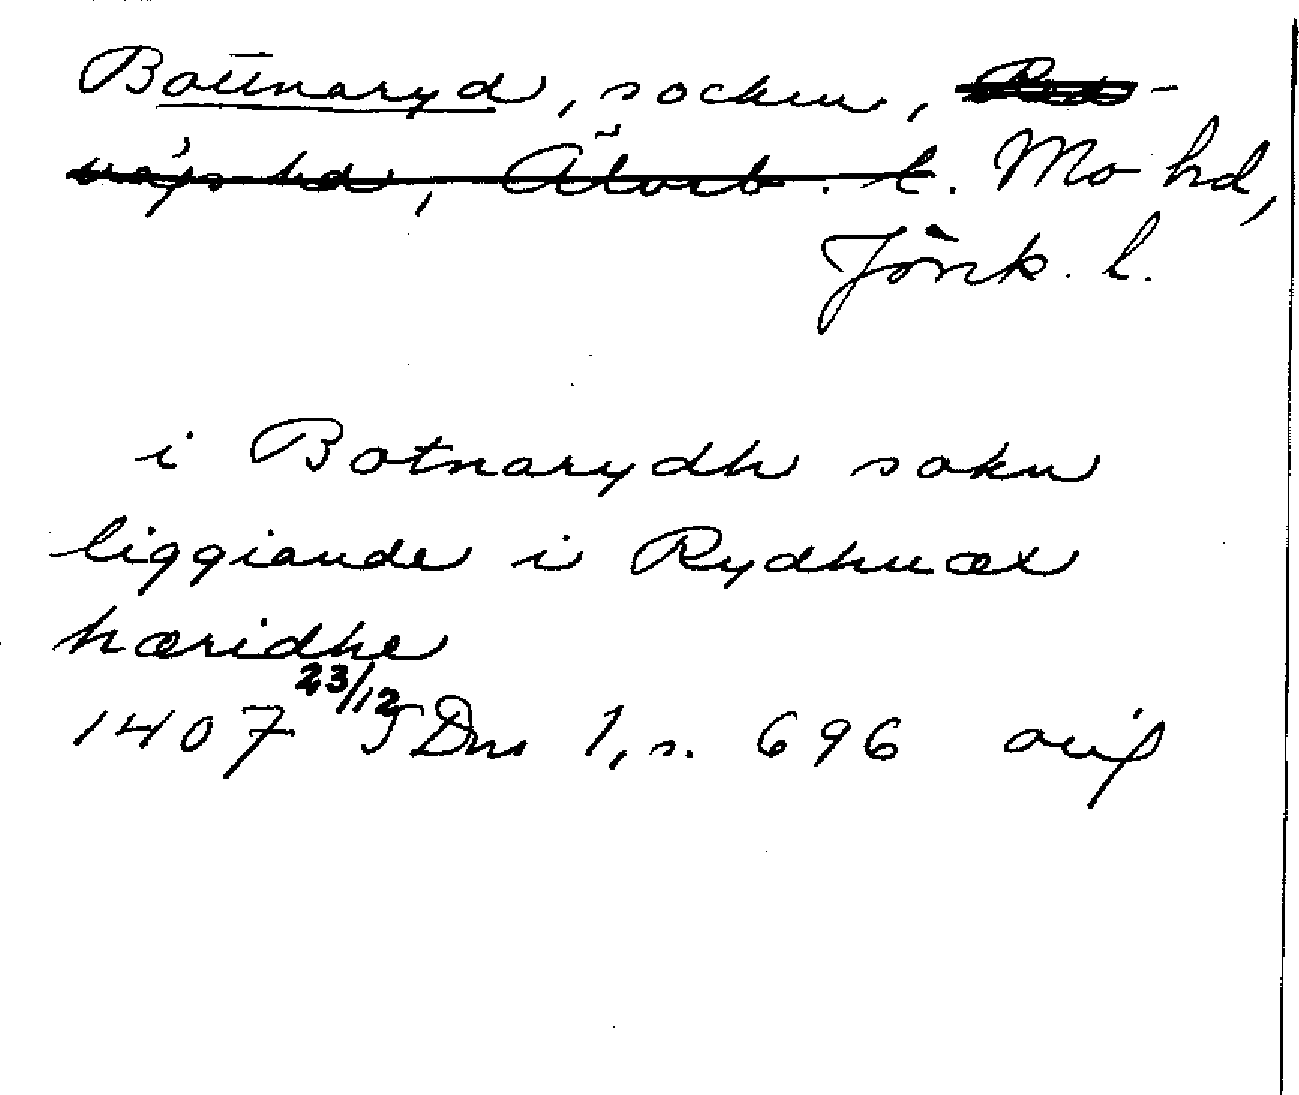 Bottnaryd, socken, Red-
vägs hd, Älvsb. l. Mo hd,
Jönk. l.
i Botnarydh sokn
liggiande i Rydhuæx
hæridhe
1407 23/12 SDns 1, s. 696 avſ